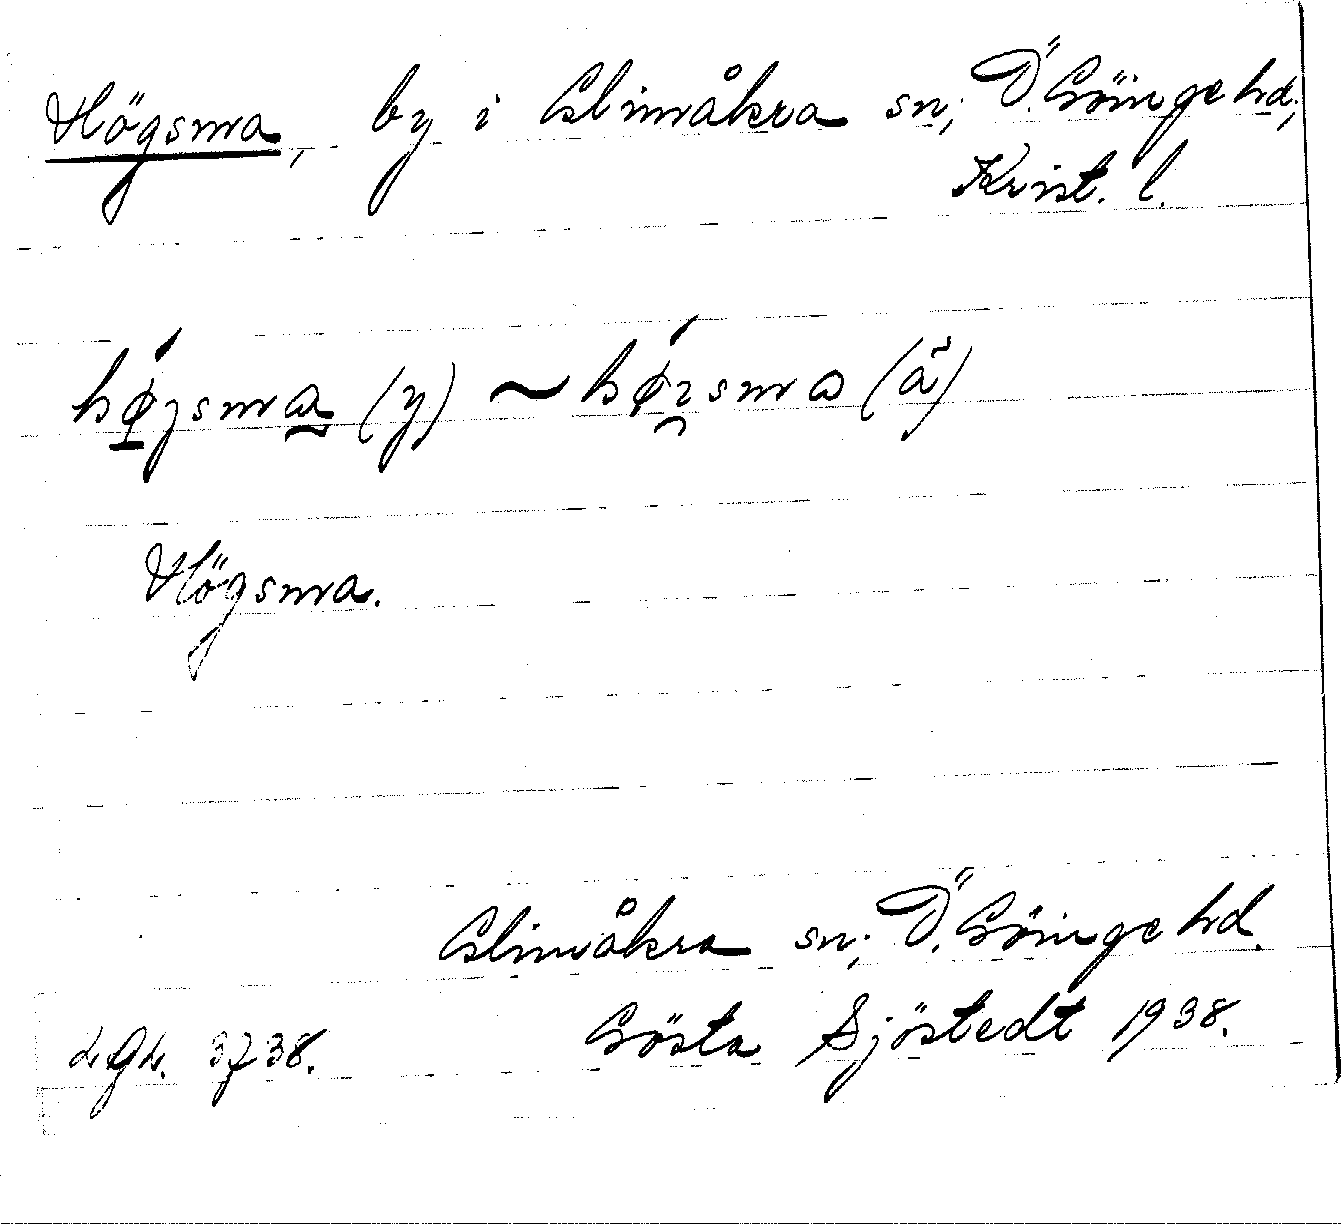 Högsma, by i Glimåkra sn; Ö. Göinge hd;
Krist. l.
hǿ̱jsma̰ (y) ~ hǿi̯sma (ä)
Högsma.
Glimåkra sn; Ö. Göinge hd.
Gösta Sjöstedt 1938.